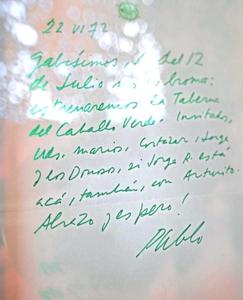 22 VI 72
Gabísimos, el del 12
de Julio no es broma:
estrenaremos la Taberna
del Caballo Verde. Invitados,
uds, marios, Cortazar, Jorge
y los Donoso, si Jorge A. está
acá, también, con Arturito.
Abrazo y espero!
Pablo